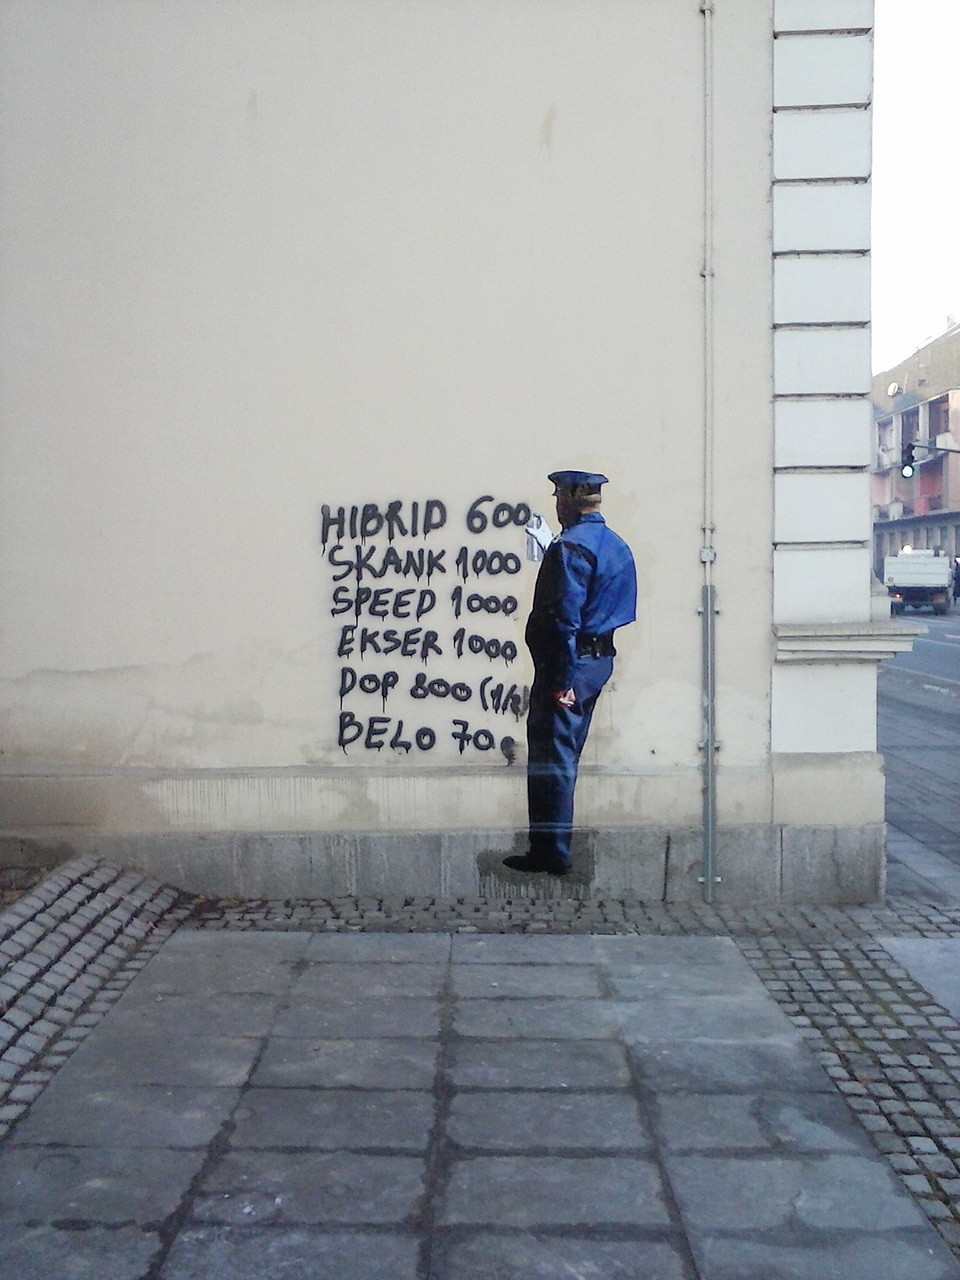 HIBRID 600
SKANK 1000
SPEED 1000
EKSER 1000
DOP 800 (1/2)
BELO 70e